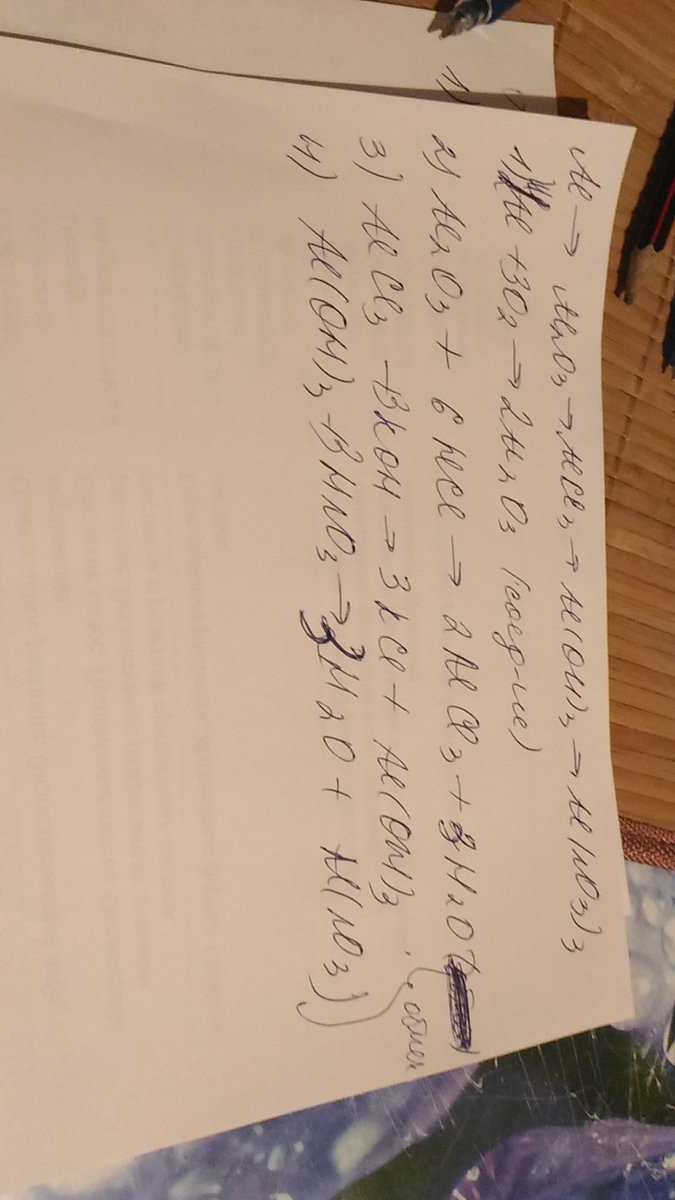 Al → Al2O3 → AlCl3 → Al(OH)3 → Al(NO3)3
1) Al + 3O2 → 2Al2O3 (соед-ие)
2) Al2O3 + 6HCl → 2AlCl3 + 3H2O
3) AlCl3 + 3KOH → 3KCl + Al(OH)3
обмен
4) Al(OH)3 + 3HNO3 → 3H2O + Al(NO3)
1)